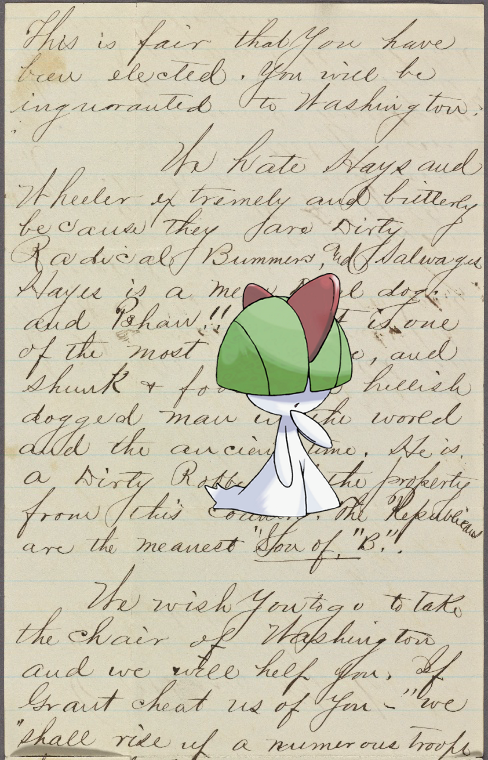 This is fair that You have
been elected. You will be
inguaranted to Washington.
We hate Hays and
Wheeler extremely and bitterly
because they are Dirty
Radical Bummers, and Salwages
Hayes is a dog.
and is one
of the most and
Skunk & hellish
dogged man in the world
and the ancient time. He is
a Dirty the property
from this country. The Republicans
are the meanest "Son of "B".
We wish You to go to take
the chair of Washington
and we will help you. If
Grant cheat us of You - "we
"shall rise up a numerous troops